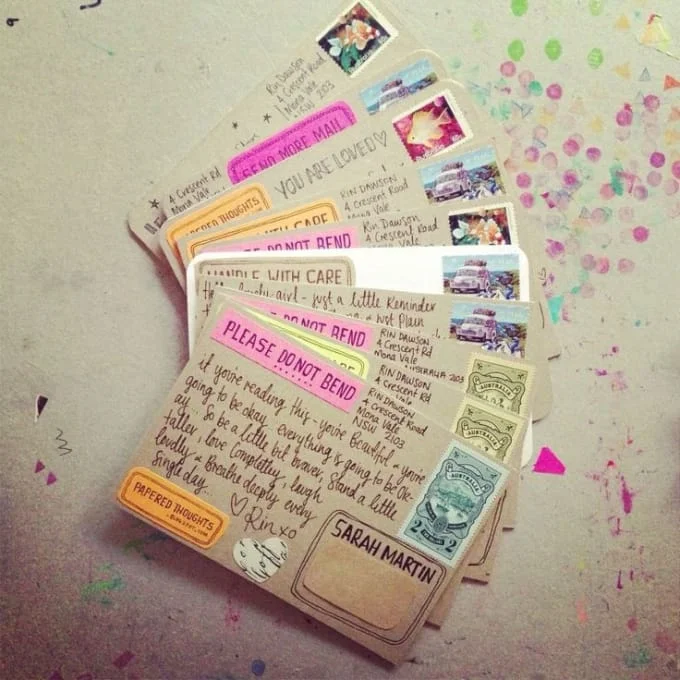 Rin Dawson
4 Crescent Road
Mona Vale
NSW 2103
SEND MORE MAIL
4 Crescent Rd
Mona Vale
YOU ARE LOVED ♡
PAPERED THOUGHTS
WITH CARE
RIN DAWSON
4 Crescent Road
Mona Vale
DO NOT BEND
Rin Dawson
4 Crescent Road
Mona Vale
HANDLE WITH CARE
girl - just a little Reminder
not Plain
DO NOT BEND
RIN DAWSON
4 Crescent Rd
Mona Vale
AUSTRALIA 2103
RIN DAWSON
4 Crescent Rd
Mona Vale
AUSTRALIA
RIN DAWSON
4 Crescent Road
Mona Vale
NSW 2103
AUSTRALIA
PLEASE DO NOT BEND
if you're reading this - you're Beautiful & you're
going to be okay. Everything is going to be Ok-
ay. So be a little bit braver, Stand a little
taller, love Completley, laugh
loudly & Breathe deeply every
Single day.
♡ Rin xo
PAPERED THOUGHTS
.BLOGSPOT.COM
AUSTRALIA
2 2
SARAH MARTIN